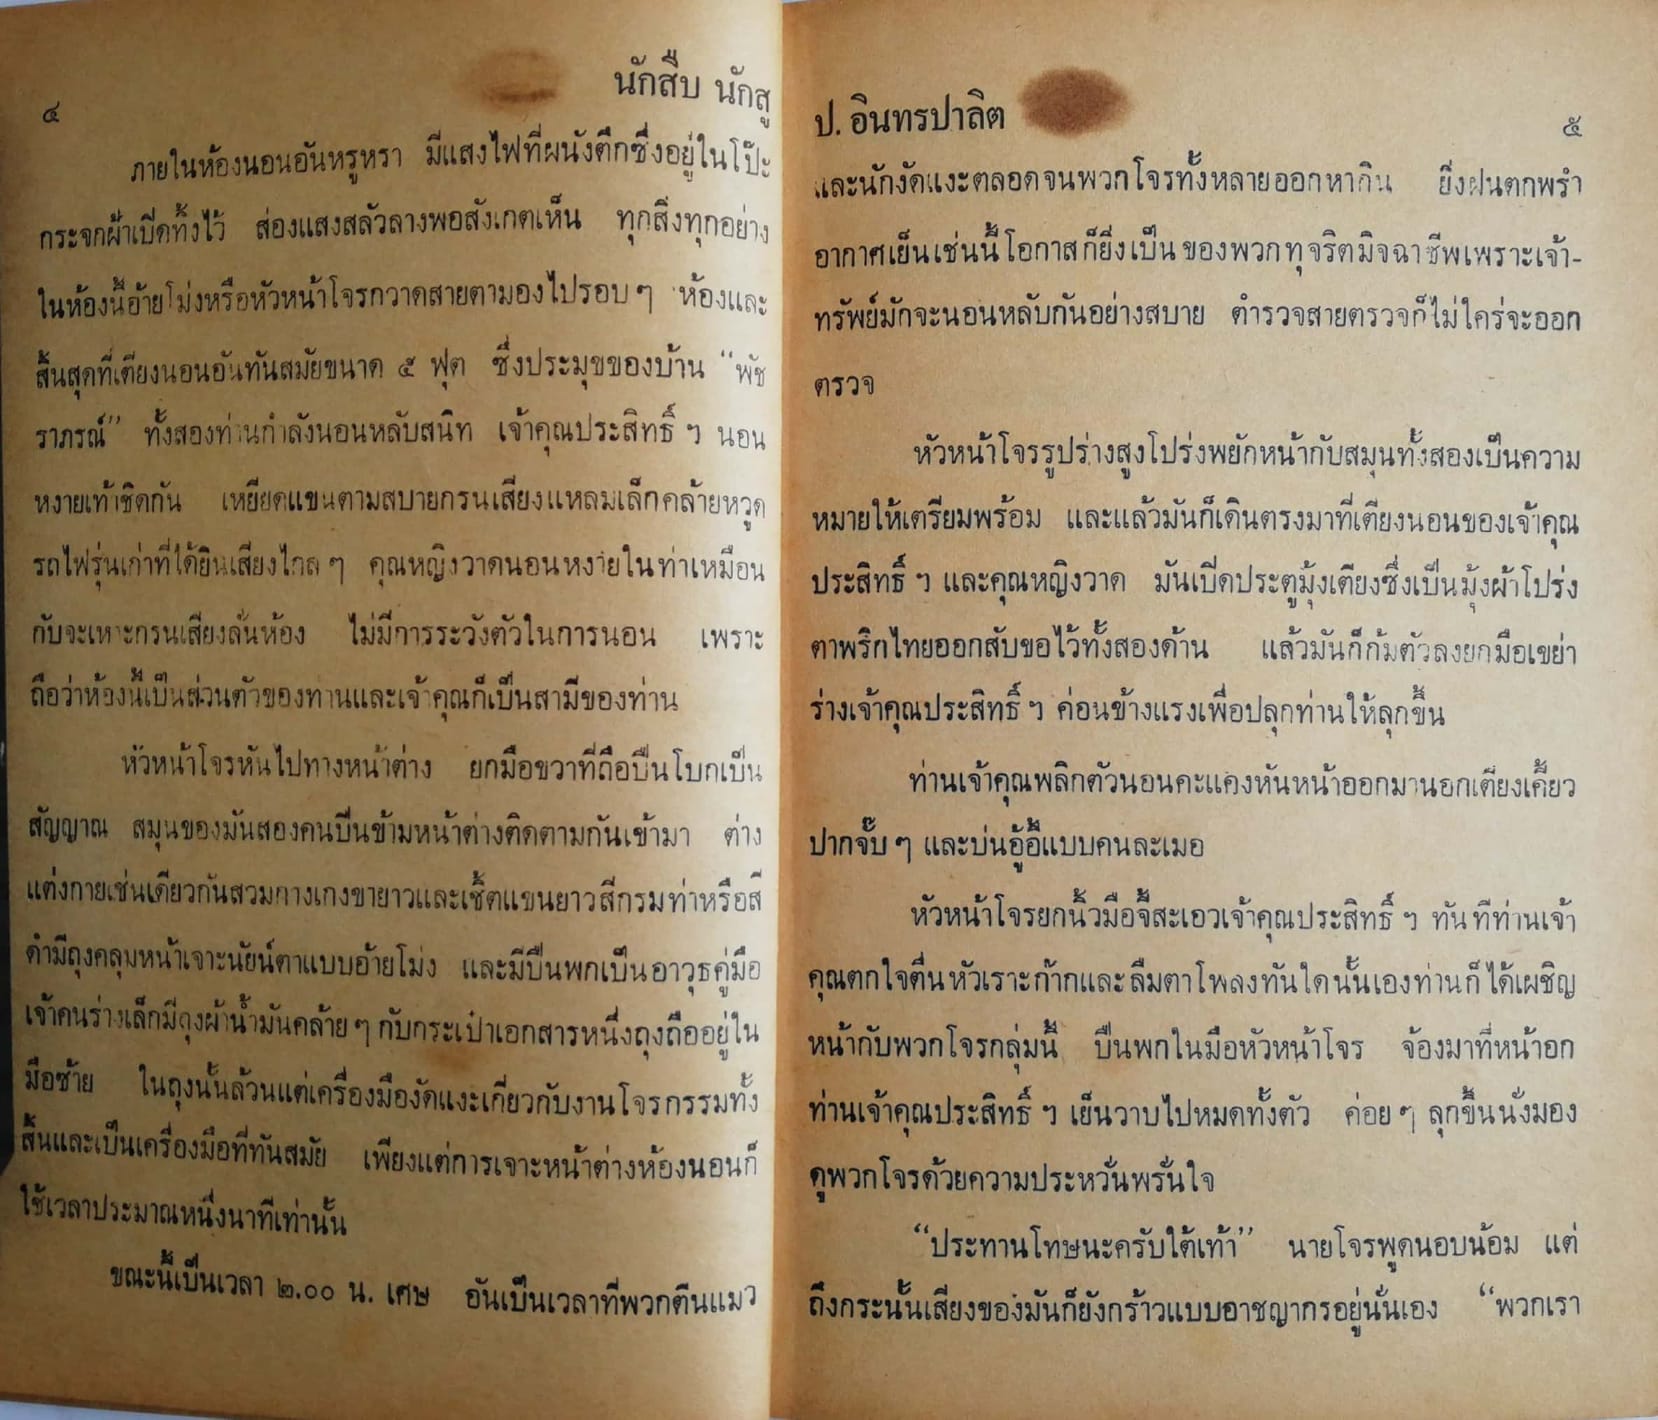 ๔
นักสืบ นักสู
ภายในห้องนอนอันหรูหรา มีแสงไฟที่ผนังตึกซึ่งอยู่ในโป๊ะ
กระจกฝ้าเปิดทิ้งไว้ ส่องแสงสลัวลางพอสังเกตเห็น ทุกสิ่งทุกอย่าง
ในห้องนี้อ้ายโม่งหรือหัวหน้าโจรกวาดสายตามองไปรอบ ๆ ห้องและ
สิ้นสุดที่เตียงนอนอันทันสมัยขนาด ๕ ฟุต ซึ่งประมุขของบ้าน “พัช
ราภรณ์” ทั้งสองท่านกำลังนอนหลับสนิท เจ้าคุณประสิทธิ์ ฯ นอน
หงายเท้าชิดกัน เหยียดแขนตามสบายกรนเสียงแหลมเล็กคล้ายหวูด
รถไฟรุ่นเก่าที่ได้ยินเสียงไกล ๆ คุณหญิงวาดนอนหงายในท่าเหมือน
กับจะเหาะกรนเสียงลั่นห้อง ไม่มีการระวังตัวในการนอน เพราะ
ถือว่าห้องนี้เป็นส่วนตัวของท่านและเจ้าคุณก็เป็นสามีของท่าน
หัวหน้าโจรหันไปทางหน้าต่าง ยกมือขวาที่ถือปืนโบกเป็น
สัญญาณ สมุนของมันสองคนปีนข้ามหน้าต่างติดตามกันเข้ามา ต่าง
แต่งกายเช่นเดียวกันสวมกางเกงขายาวและเชิ้ตแขนยาวสีกรมท่าหรือสี
ดำมีถุงคลุมหน้าเจาะนัยน์ตาแบบอ้ายโม่ง และมีปืนพกเป็นอาวุธคู่มือ
เจ้าคนร่างเล็กมีถุงผ้าน้ำมันคล้าย ๆ กับกระเป๋าเอกสารหนึ่งถุงถืออยู่ใน
มือซ้าย ในถุงนั้นล้วนแต่เครื่องมืองัดแงะเกี่ยวกับงานโจรกรรมทั้ง
สิ้นและเป็นเครื่องมือที่ทันสมัย เพียงแต่การเจาะหน้าต่างห้องนอนก็
ใช้เวลาประมาณหนึ่งนาทีเท่านั้น
ขณะนี้เป็นเวลา ๒.๐๐ น. เศษ อันเป็นเวลาที่พวกตีนแมว
ป. อินทรปาลิต
๕
และนักงัดแงะตลอดจนพวกโจรทั้งหลายออกหากิน ยิ่งฝนตกพรำ
อากาศเย็นเช่นนี้โอกาสก็ยิ่งเป็นของพวกทุจริตมิจฉาชีพเพราะเจ้า-
ทรัพย์มักจะนอนหลับกันอย่างสบาย ตำรวจสายตรวจก็ไม่ใคร่จะออก
ตรวจ
หัวหน้าโจรรูปร่างสูงโปร่งพยักหน้ากับสมุนทั้งสองเป็นความ
หมายให้เตรียมพร้อม และแล้วมันก็เดินตรงมาที่เตียงนอนของเจ้าคุณ
ประสิทธิ์ ฯ และคุณหญิงวาด มันเปิดประตูมุ้งเตียงซึ่งเป็นมุ้งผ้าโปร่ง
ตาพริกไทยออกสับขอไว้ทั้งสองด้าน แล้วมันก็ก้มตัวลงยกมือเขย่า
ร่างเจ้าคุณประสิทธิ์ ฯ ค่อนข้างแรงเพื่อปลุกท่านให้ลุกขึ้น
ท่านเจ้าคุณพลิกตัวนอนคะแคงหันหน้าออกมานอกเตียงเคี้ยว
ปากจั๊บ ๆ และบ่นอู้อี้แบบคนละเมอ
หัวหน้าโจรยกนิ้วมือจี้สะเอวเจ้าคุณประสิทธิ์ ฯ ทันทีท่านเจ้า
คุณตกใจตื่นหัวเราะก๊ากและลืมตาโพลงทันใดนั้นเองท่านก็ได้เผชิญ
หน้ากับพวกโจรกลุ่มนี้ ปืนพกในมือหัวหน้าโจร จ้องมาที่หน้าอก
ท่านเจ้าคุณประสิทธิ์ ฯ เย็นวาบไปหมดทั้งตัว ค่อย ๆ ลุกขึ้นนั่งมอง
ดูพวกโจรด้วยความประหวั่นพรั่นใจ
“ประทานโทษนะครับใต้เท้า” นายโจรพูดนอบน้อม แต่
ถึงกระนั้นเสียงของมันก็ยังกร้าวแบบอาชญากรอยู่นั่นเอง “พวกเรา